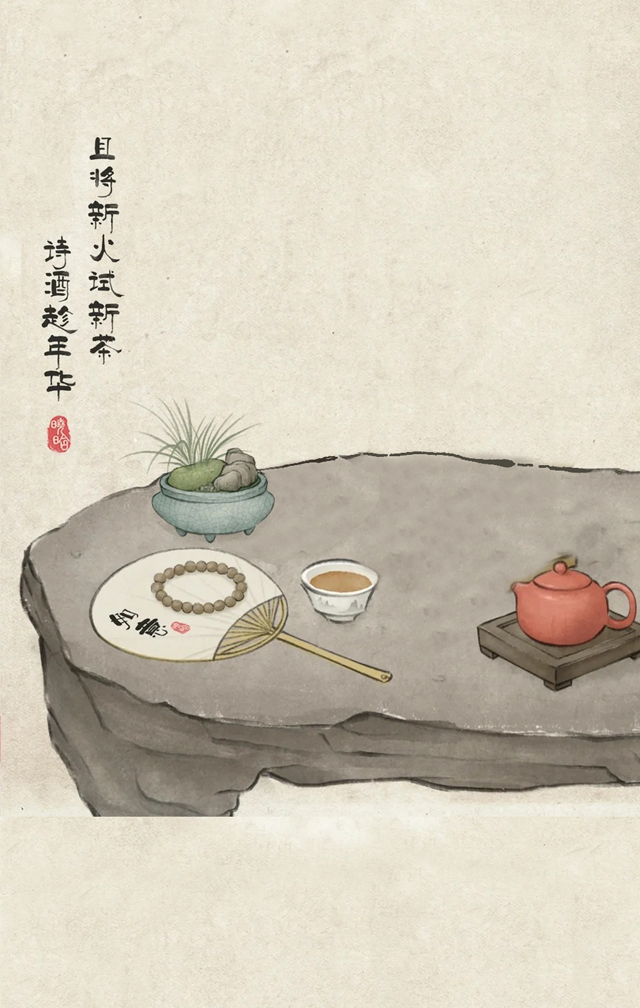 且将新火试新茶
诗酒趁年华
晓晗
如意